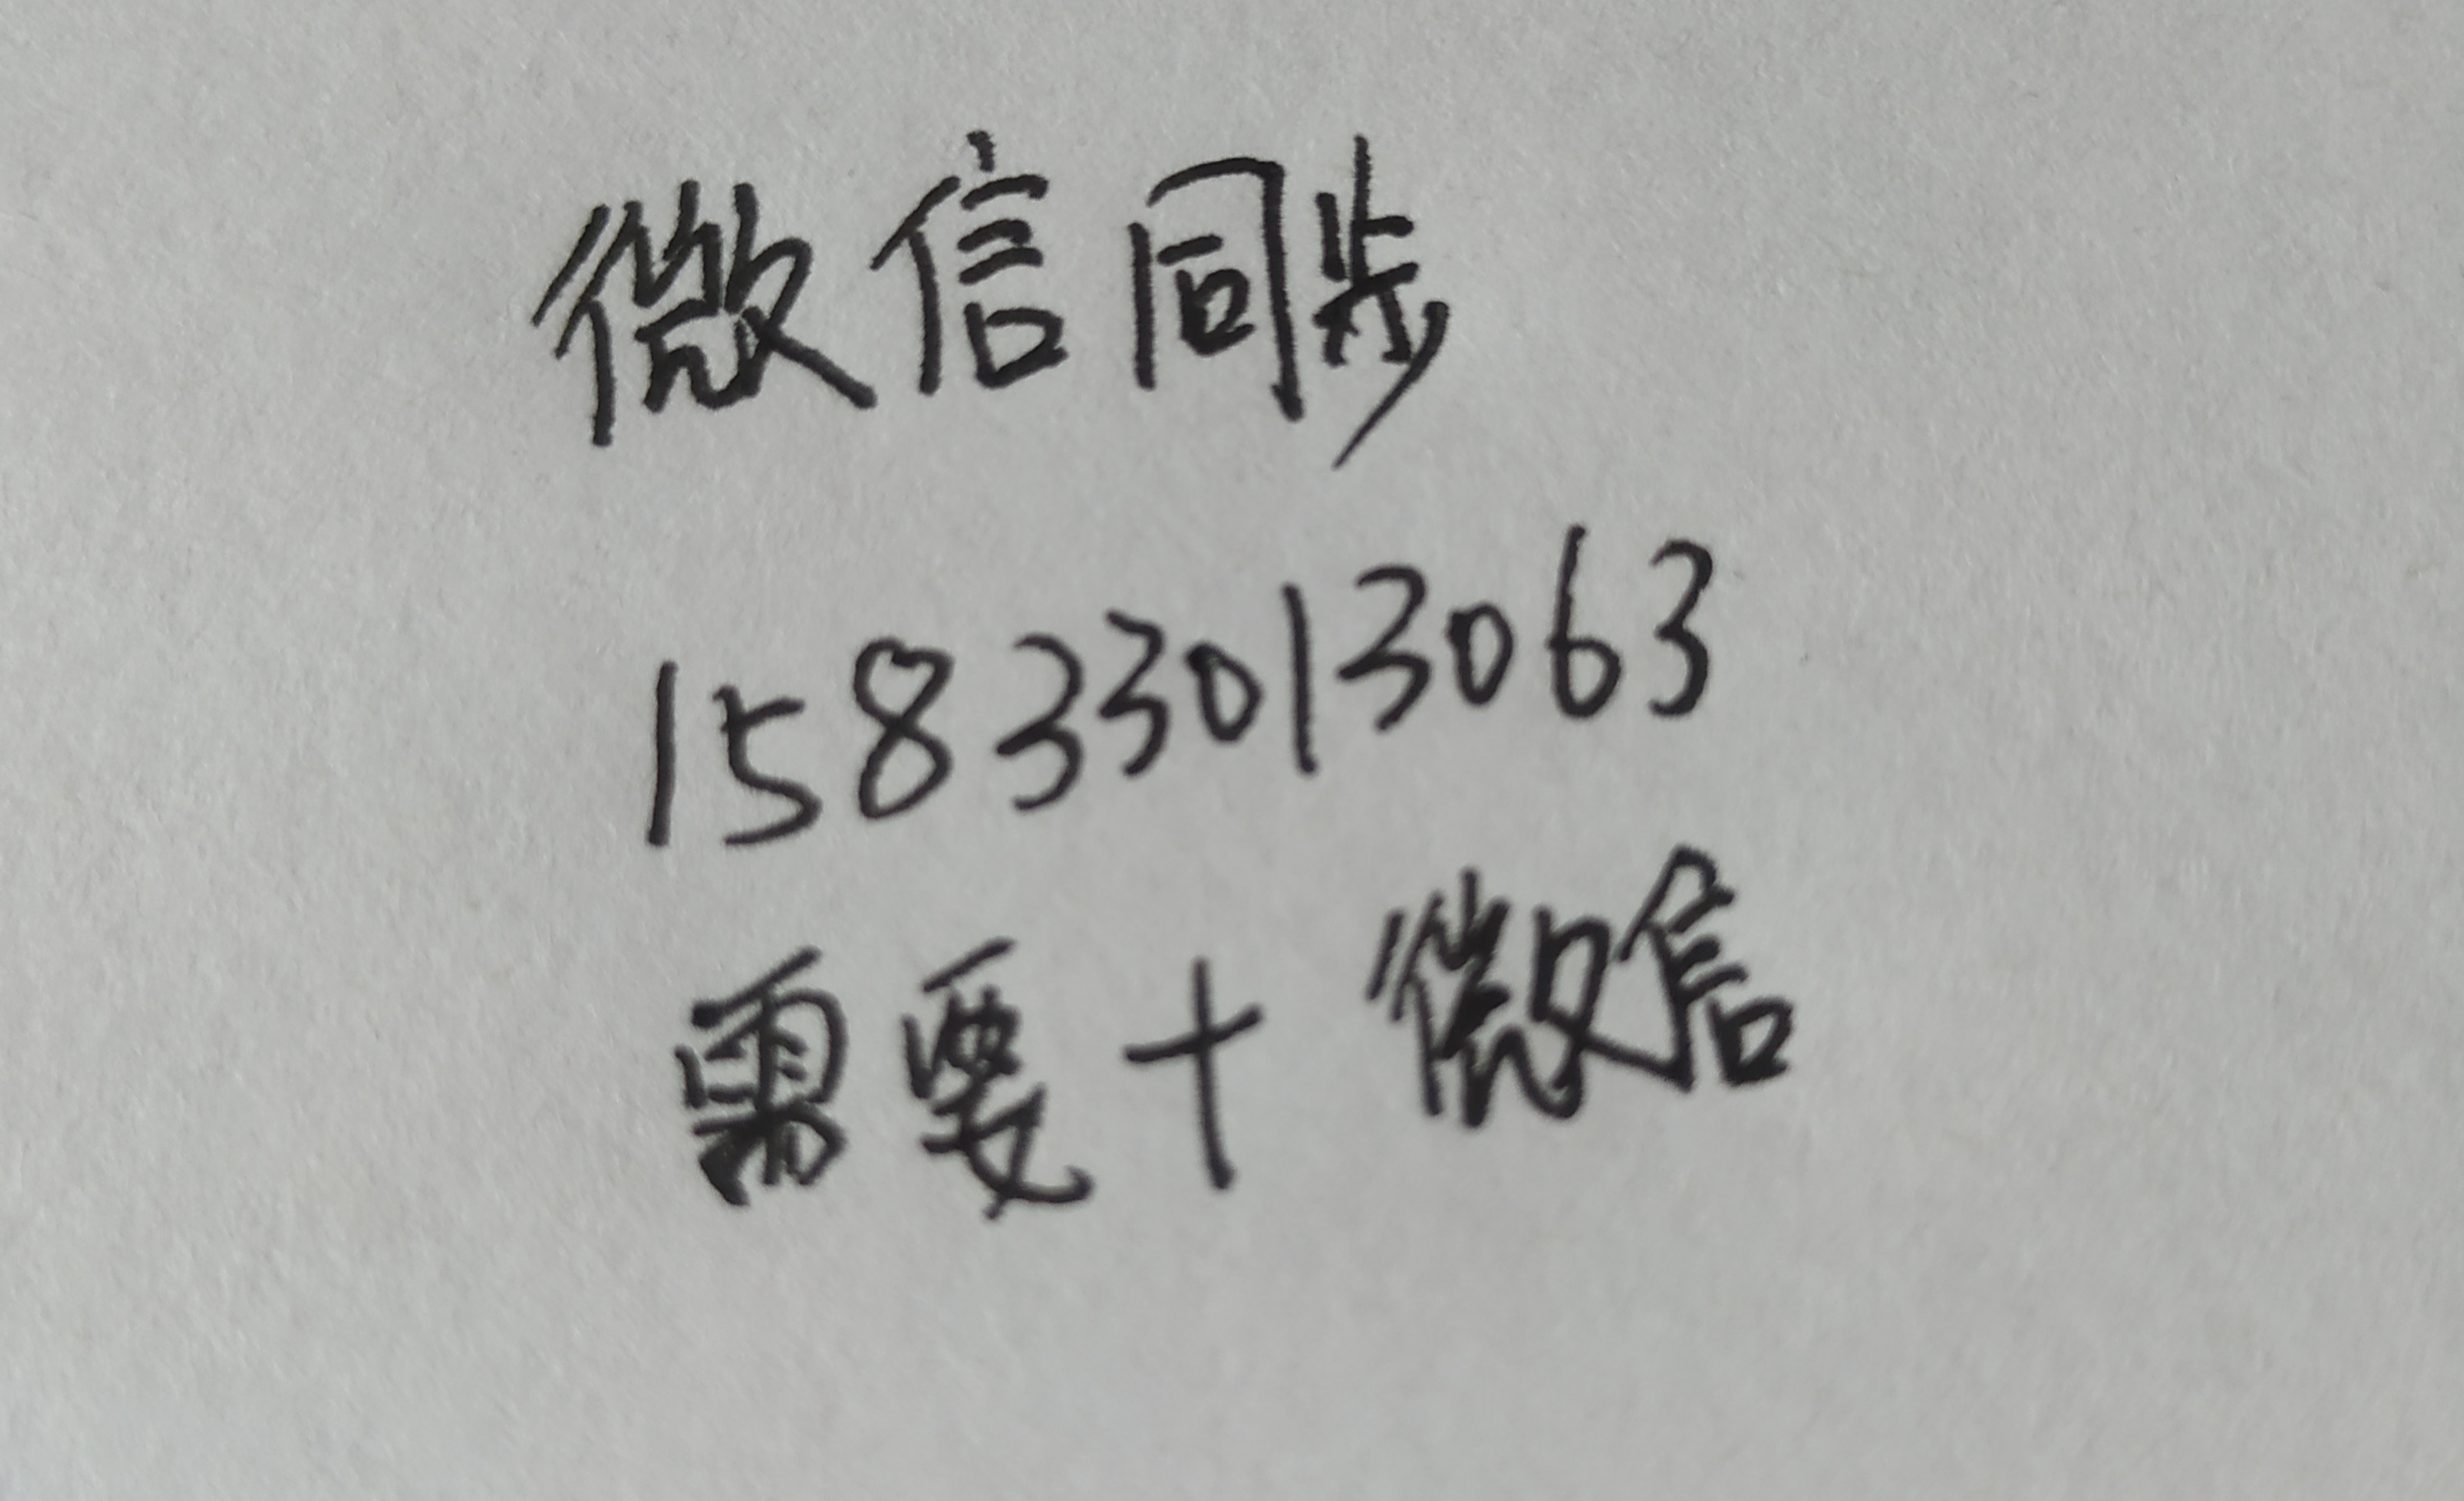 微信同步
15833013063
需要+微信